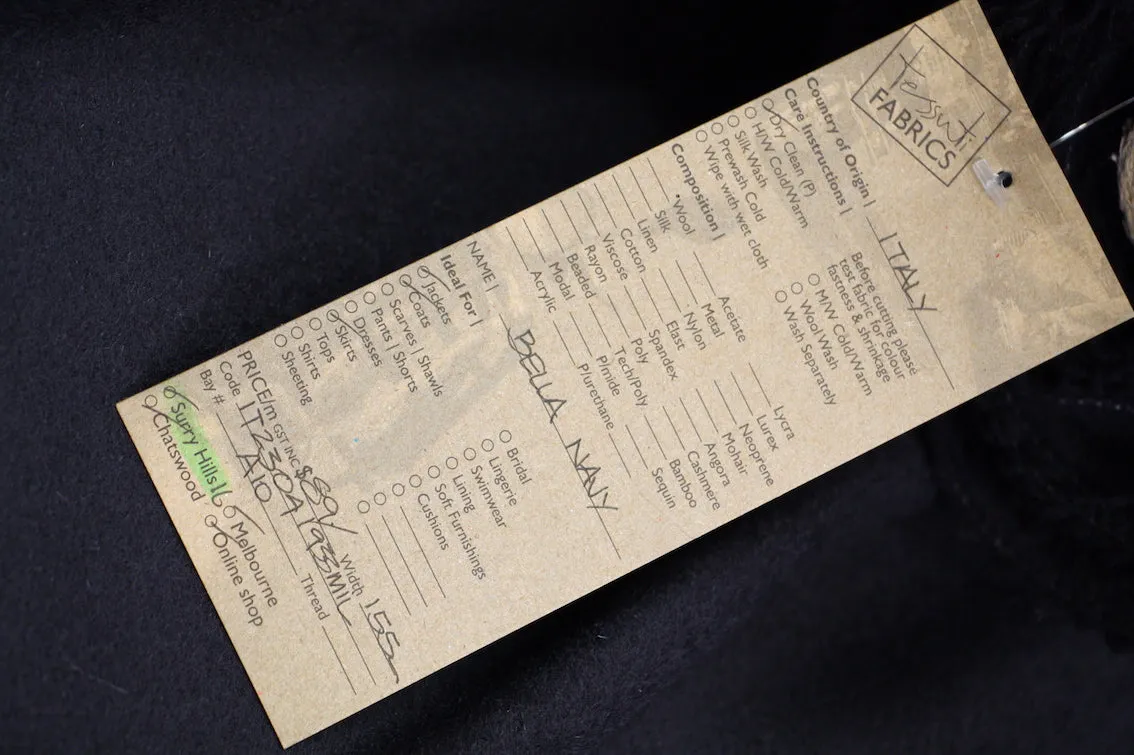 tessuti
FABRICS
Country of Origin | ITALY
Care Instructions |
Before cutting please
test fabric for colour
fastness & shrinkage
Dry Clean (P)
H/W Cold/Warm
Silk Wash
Prewash Cold
Wipe with wet cloth
M/W Cold/Warm
Wool Wash
Wash Separately
Composition |
Wool
Silk
Linen
Cotton
Viscose
Rayon
Beaded
Modal
Acrylic
Acetate
Metal
Nylon
Elast
Spandex
Poly
Tech/Poly
P/mide
P/urethane
Lycra
Lurex
Neoprene
Mohair
Angora
Cashmere
Bamboo
Sequin
NAME | BELLA NAVY
Ideal For |
Jackets
Coats
Scarves | Shawls
Pants | Shorts
Dresses
Skirts
Tops
Shirts
Sheeting
Bridal
Lingerie
Swimwear
Lining
Soft Furnishings
Cushions
PRICE/m GST INC $89/ Width 155
Code IT2304/93MIL
Bay # A10 Thread
Surry Hills Melbourne
Chatswood Online shop